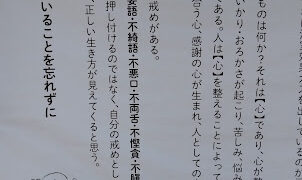 ものは何か?それは【心】であり、心が
いかり・おろかさが起こり、苦しみ、悩み
ある。人は【心】を整えることによって
合う心、感謝の心が生まれ、人としての
戒めがある。
妄語・不綺語・不悪口・不両舌・不慳貪・不瞋
押し付けるのではなく、自分の戒めとし
、正しい生き方が見えてくると思う。
いることを忘れずに